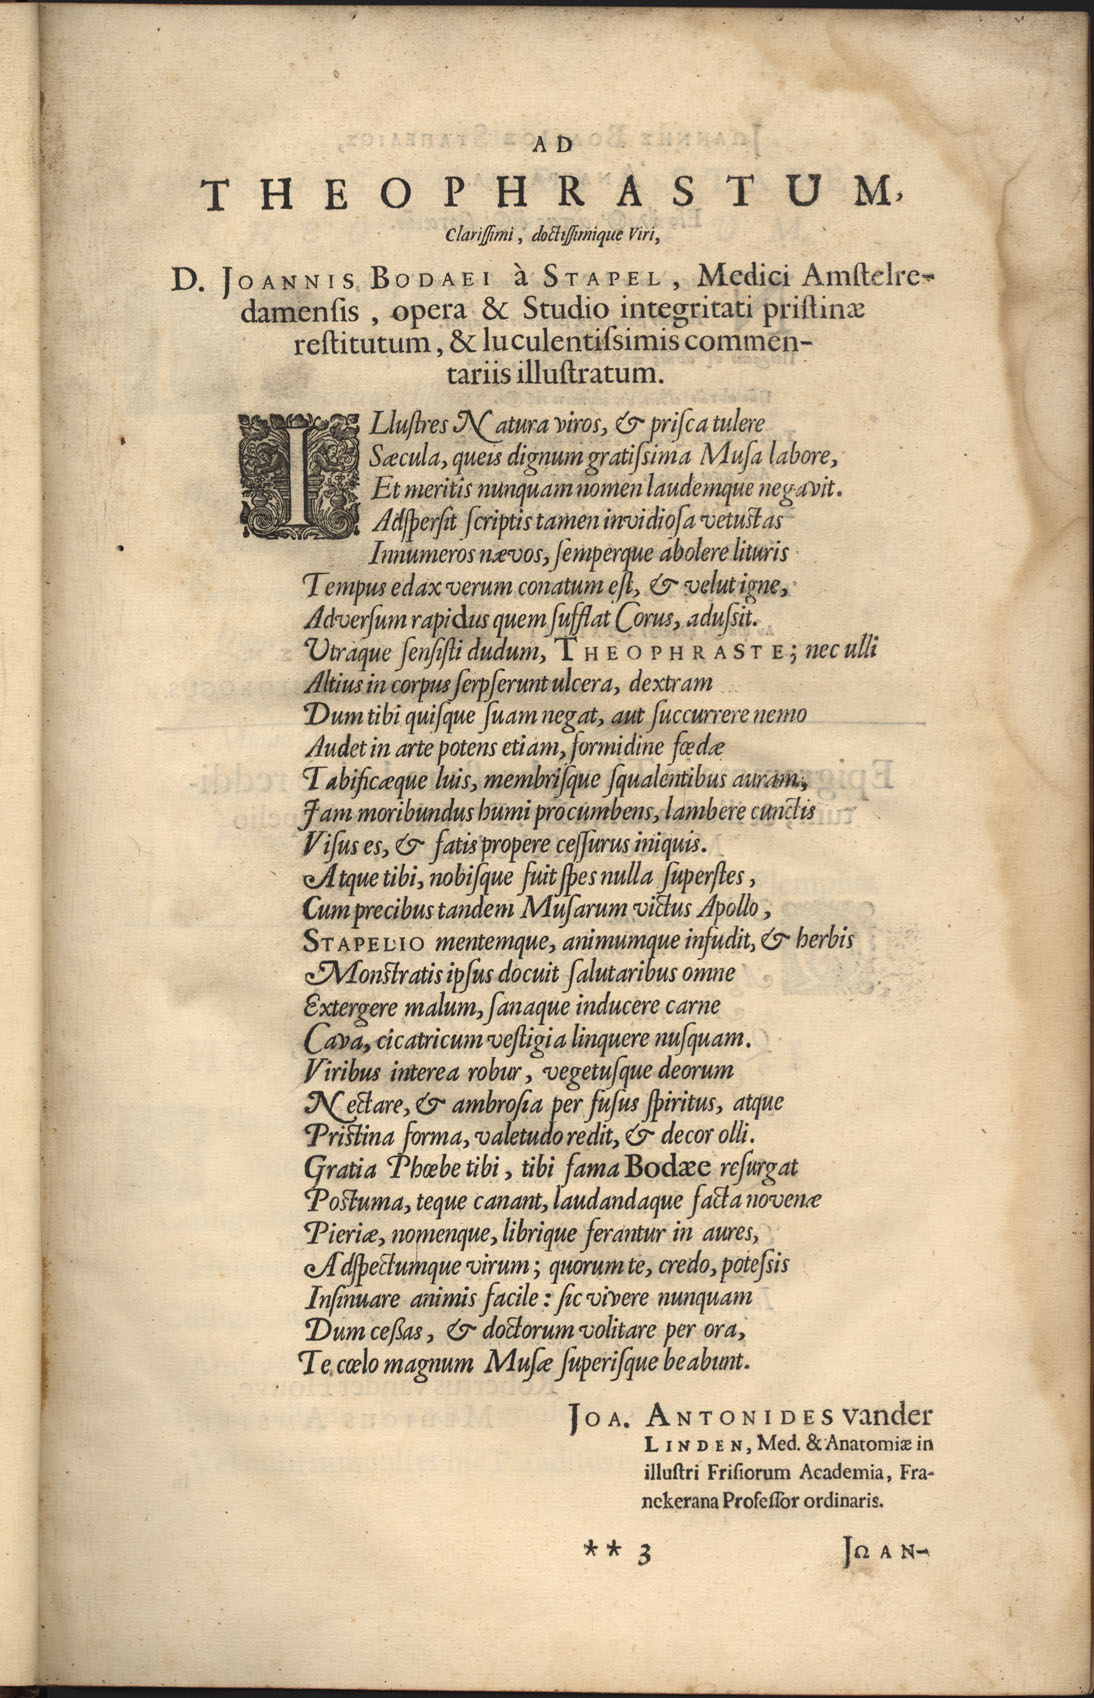 AD
THEOPHRASTUM,
Clariſſimi, doctiſſimique Viri,
D. JOANNIS BODAEI à STAPEL, Medici Amſtelre-
damenſis, opera & Studio integritati priſtinæ
reſtitutum, & luculentiſsimis commen-
tariis illuſtratum.
ILluſtres Natura viros, & priſca tulere
Sæcula, queis dignum gratiſsima Muſa labore,
Et meritis nunquam nomen laudemque negavit.
Adſperſit ſcriptis tamen invidioſa vetustas
Innumeros nævos, ſemperque abolere lituris
Tempus edax verum conatum eſt, & velut igne,
Adverſum rapidus quem ſufflat Corus, aduſsit.
Utraque ſenſiſti dudum, THEOPHRASTE; nec ulli
Altius in corpus ſerpſerunt ulcera, dextram
Dum tibi quiſque ſuam negat, aut ſuccurrere nemo
Audet in arte potens etiam, formidine fœdæ
Tabificæque luis, membriſque ſqualentibus auram,
Jam moribundus humi procumbens, lambere cunctis
Viſus es, & fatis propere ceſſurus iniquis.
Atque tibi, nobiſque fuit ſpes nulla ſuperſtes,
Cum precibus tandem Muſarum victus Apollo,
STAPELIO mentemque, animumque infudit, & herbis
Monstratis ipſus docuit ſalutaribus omne
Extergere malum, ſanaque inducere carne
Cava, cicatricum veſtigia linquere nuſquam.
Viribus interea robur, vegetuſque deorum
Nectare, & ambroſia per fuſus ſpiritus, atque
Pristina forma, valetudo redit, & decor olli.
Gratia Phœbe tibi, tibi fama Bodæe reſurgat
Poſtuma, teque canant, laudandaque facta novenæ
Pieriæ, nomenque, librique ferantur in aures,
Adſpectumque virum; quorum te, credo, poteſsis
Inſinuare animis facile: ſic vivere nunquam
Dum ceßas, & doctorum volitare per ora,
Te cœlo magnum Muſæ ſuperiſque beabunt.
JOA. ANTONIDES vander
LINDEN, Med. & Anatomiæ in
illuſtri Friſiorum Academia, Fra-
nekerana Profeſſor ordinaris.
** 3
JΩAN-